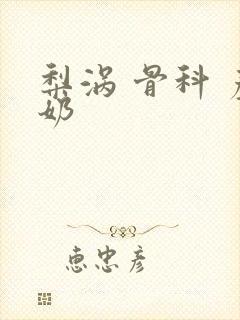 梨涡 骨科 产
奶
惠忠彦